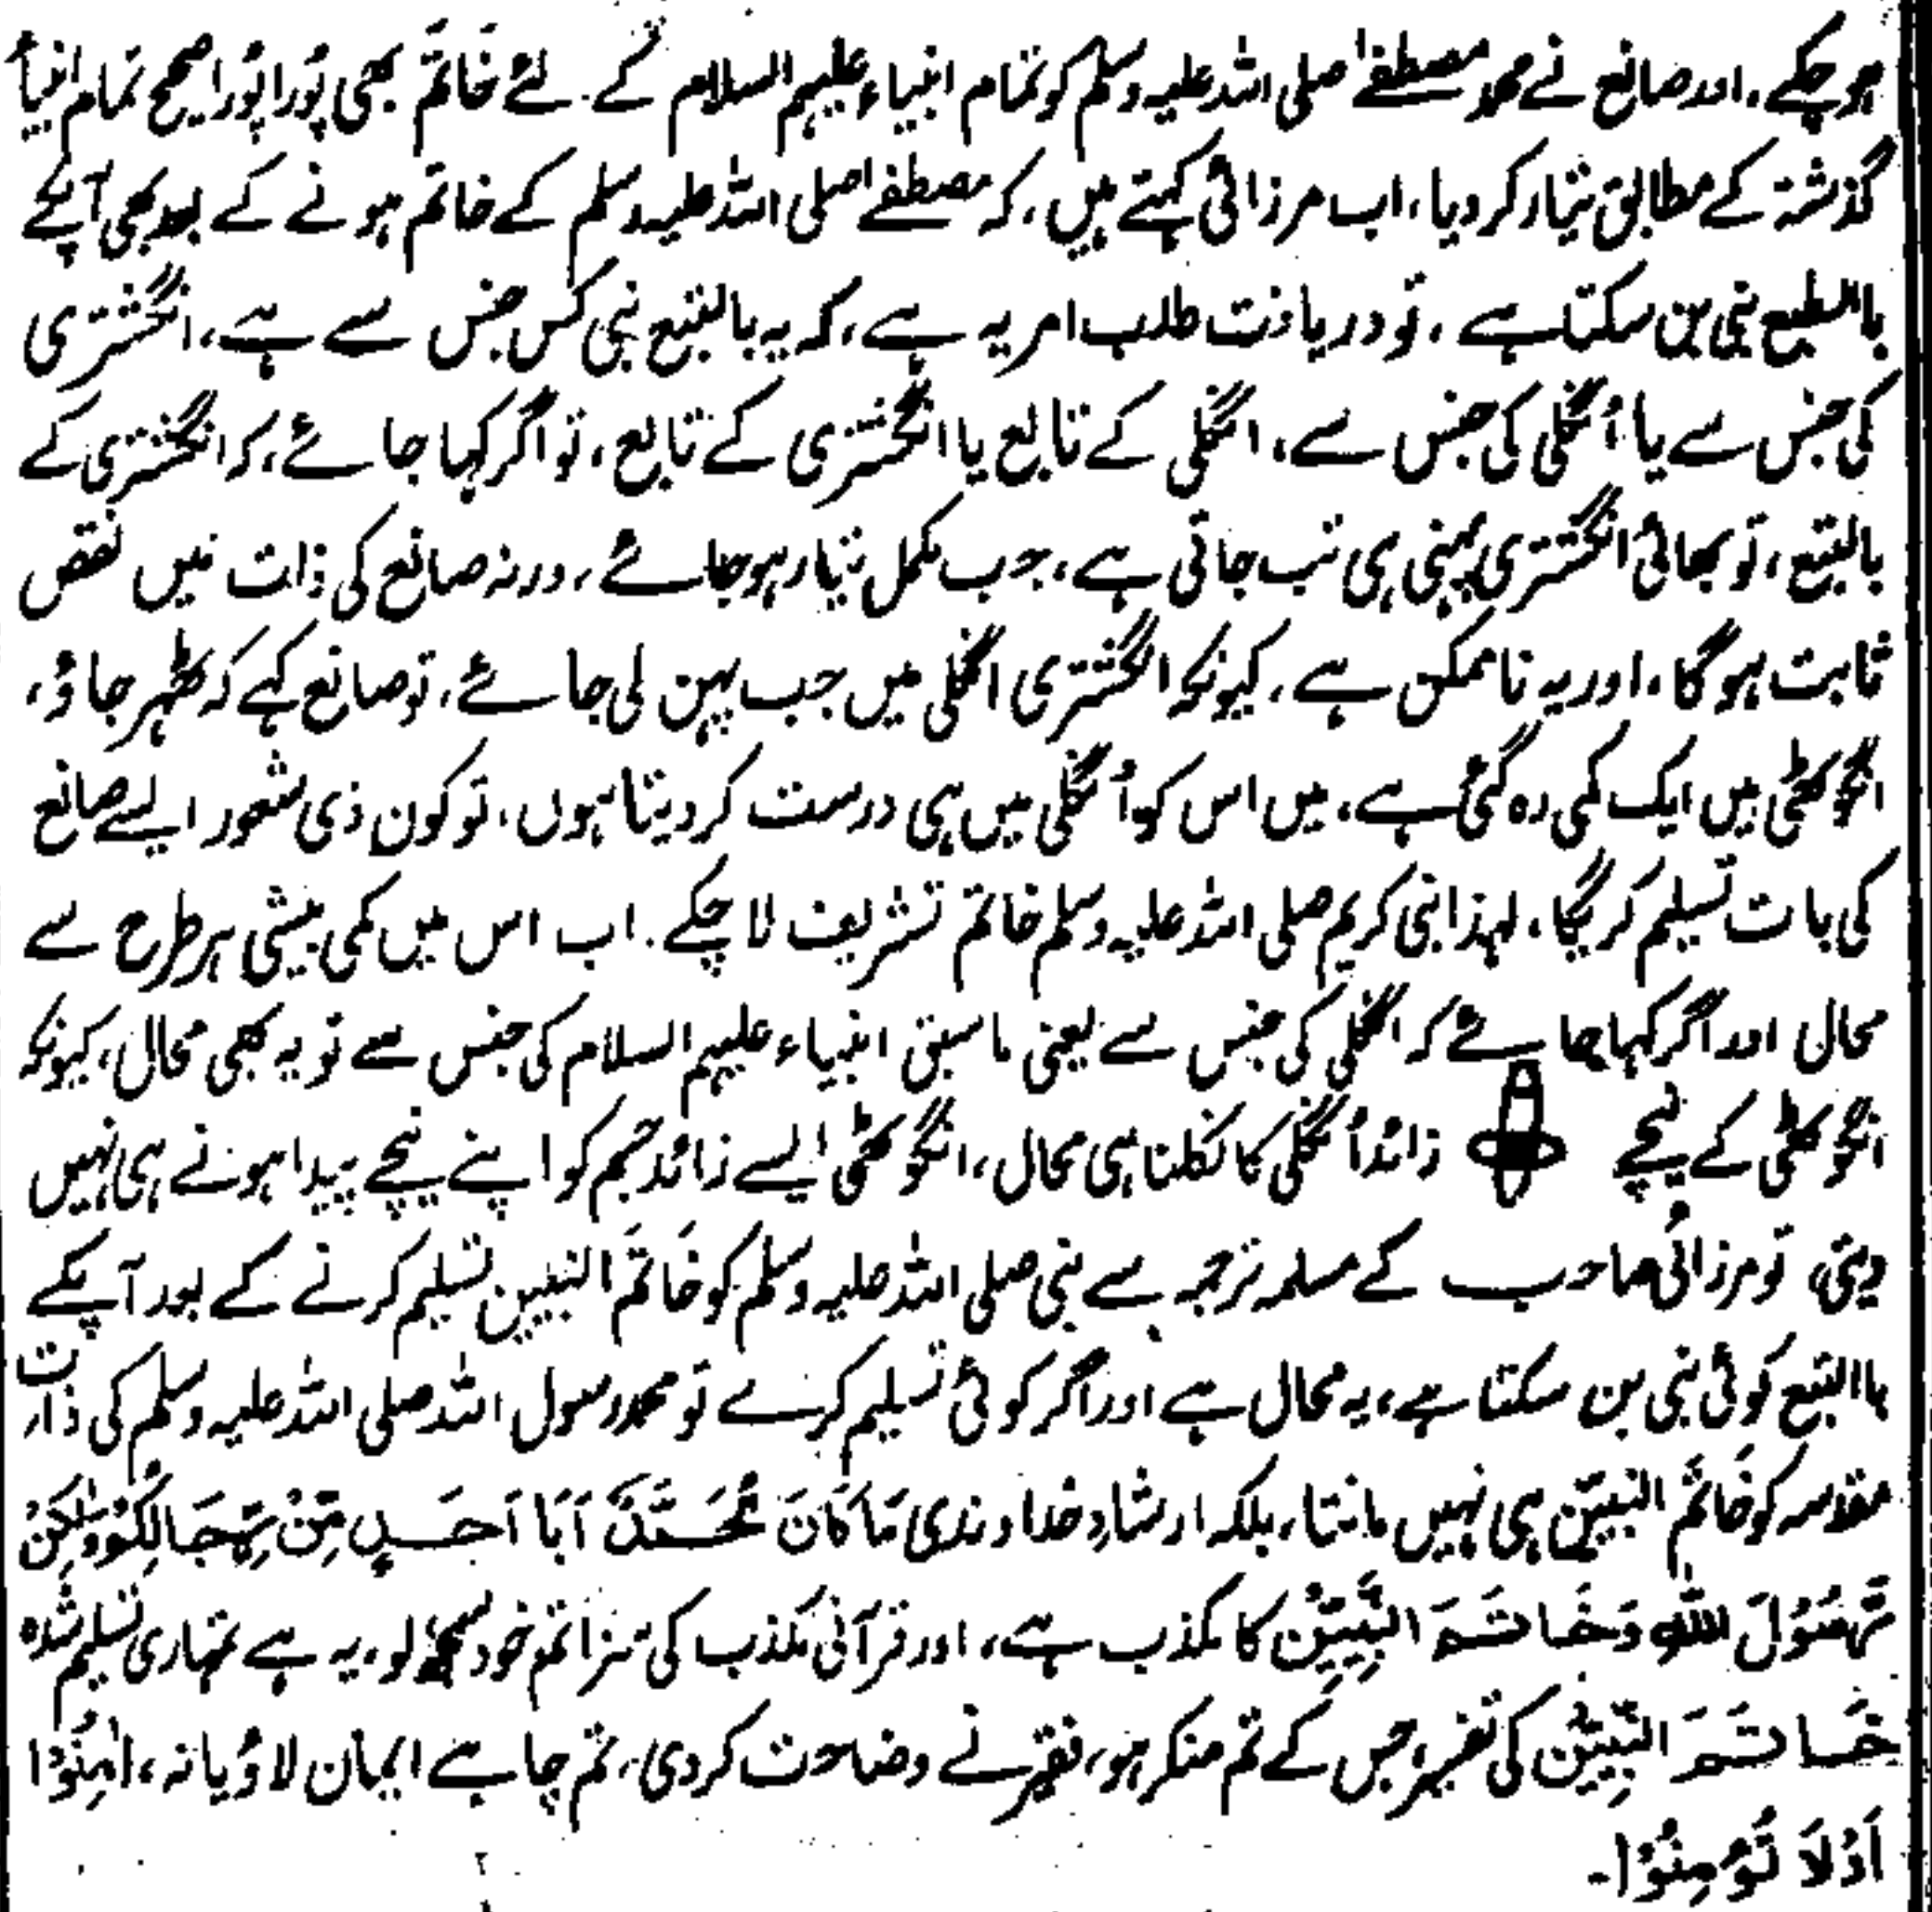 ہو چکے۔ اور صانع نے محمد مصطفےٰ صلی اللہ علیہ وسلم کو تمام انبیاء علیہم السلام کے لئے خَاتَمَ بھی پُورا پُورا صحیح تمام انبیاءِ
گذشتہ کے مطابق تیار کر دیا، اب مرزائی کہتے ہیں، کہ مصطفےٰ صلی اللہ علیہ وسلم کے خاتم ہونے کے بعد بھی آپکے
باالطبع نبی بن سکتا ہے، تو دریافت طلب امر یہ ہے، کہ یہ بالتبع نبی کس جنس سے ہے، انگشتری
کی جنس سے یا اُنگلی کی جنس سے، انگلی کے تابع یا انگشتری کے تابع، تو اگر کہا جائے، کہ انگشتری کے
بالتبع، تو بھائی انگشتری پہنی ہی تب جاتی ہے، جب مکمل تیار ہو جائے، ورنہ صانع کی ذات میں نقص
ثابت ہوگا، اور یہ ناممکن ہے، کیونکہ انگشتری انگلی میں جب پہن لی جائے، تو صانع کہے کہ ٹھہر جاؤ،
انگوٹھی میں ایک کمی رہ گئی ہے، میں اس کو اُنگلی میں ہی درست کر دیتا ہوں، تو کون ذی شعور ایسے صانع
کی بات تسلیم کریگا، لہذا نبی کریم صلی اللہ علیہ وسلم خاتم تشریف لا چکے۔ اب اس میں کمی بیشی ہر طرح سے
محال اور اگر کہا جائے کہ انگلی کی جنس سے یعنی ما سبق انبیاء علیہم السلام کی جنس سے تو یہ بھی محال، کیونکہ
انگوٹھی کے نیچے زائد اُنگلی کا نکلنا ہی محال، انگوٹھی ایسے زائد جسم کو اپنے نیچے پیدا ہونے ہی نہیں
دیتی، تو مرزائی صاحب کے مسلمہ ترجمہ سے نبی صلی اللہ علیہ وسلم کو خَاتَمَ النبیین تسلیم کرنے کے بعد آپکے
باالتبع کوئی نبی بن سکتا ہے، یہ محال ہے اور اگر کوئی تسلیم کرے تو محمد رسول اللہ صلی اللہ علیہ وسلم کی ذات
مقدسہ کو خَاتَمَ النبیّن ہی نہیں مانتا، بلکہ ارشادِ خداوندی مَا كَانَ مُحَمَّدٌ اَبَا اَحَدٍ مِّنْ رِّجَالِكُمْ وَلٰكِنْ
رَّسُوْلَ اللّٰهِ وَخَاتَمَ النَّبِيّٖنَ کا مکذب ہے، اور قرآنی مکذب کی سزا تم خود سمجھ لو، یہ ہے تمہاری تسلیم شدہ
خَاتَمَ النَّبِيّٖنَ کی تفسیر، جس کے تم منکر ہو، فقیر نے وضاحت کر دی، تم چاہے ایمان لاؤ یا نہ، اٰمِنُوْا
اَوْلَا تُؤْمِنُوْا۔